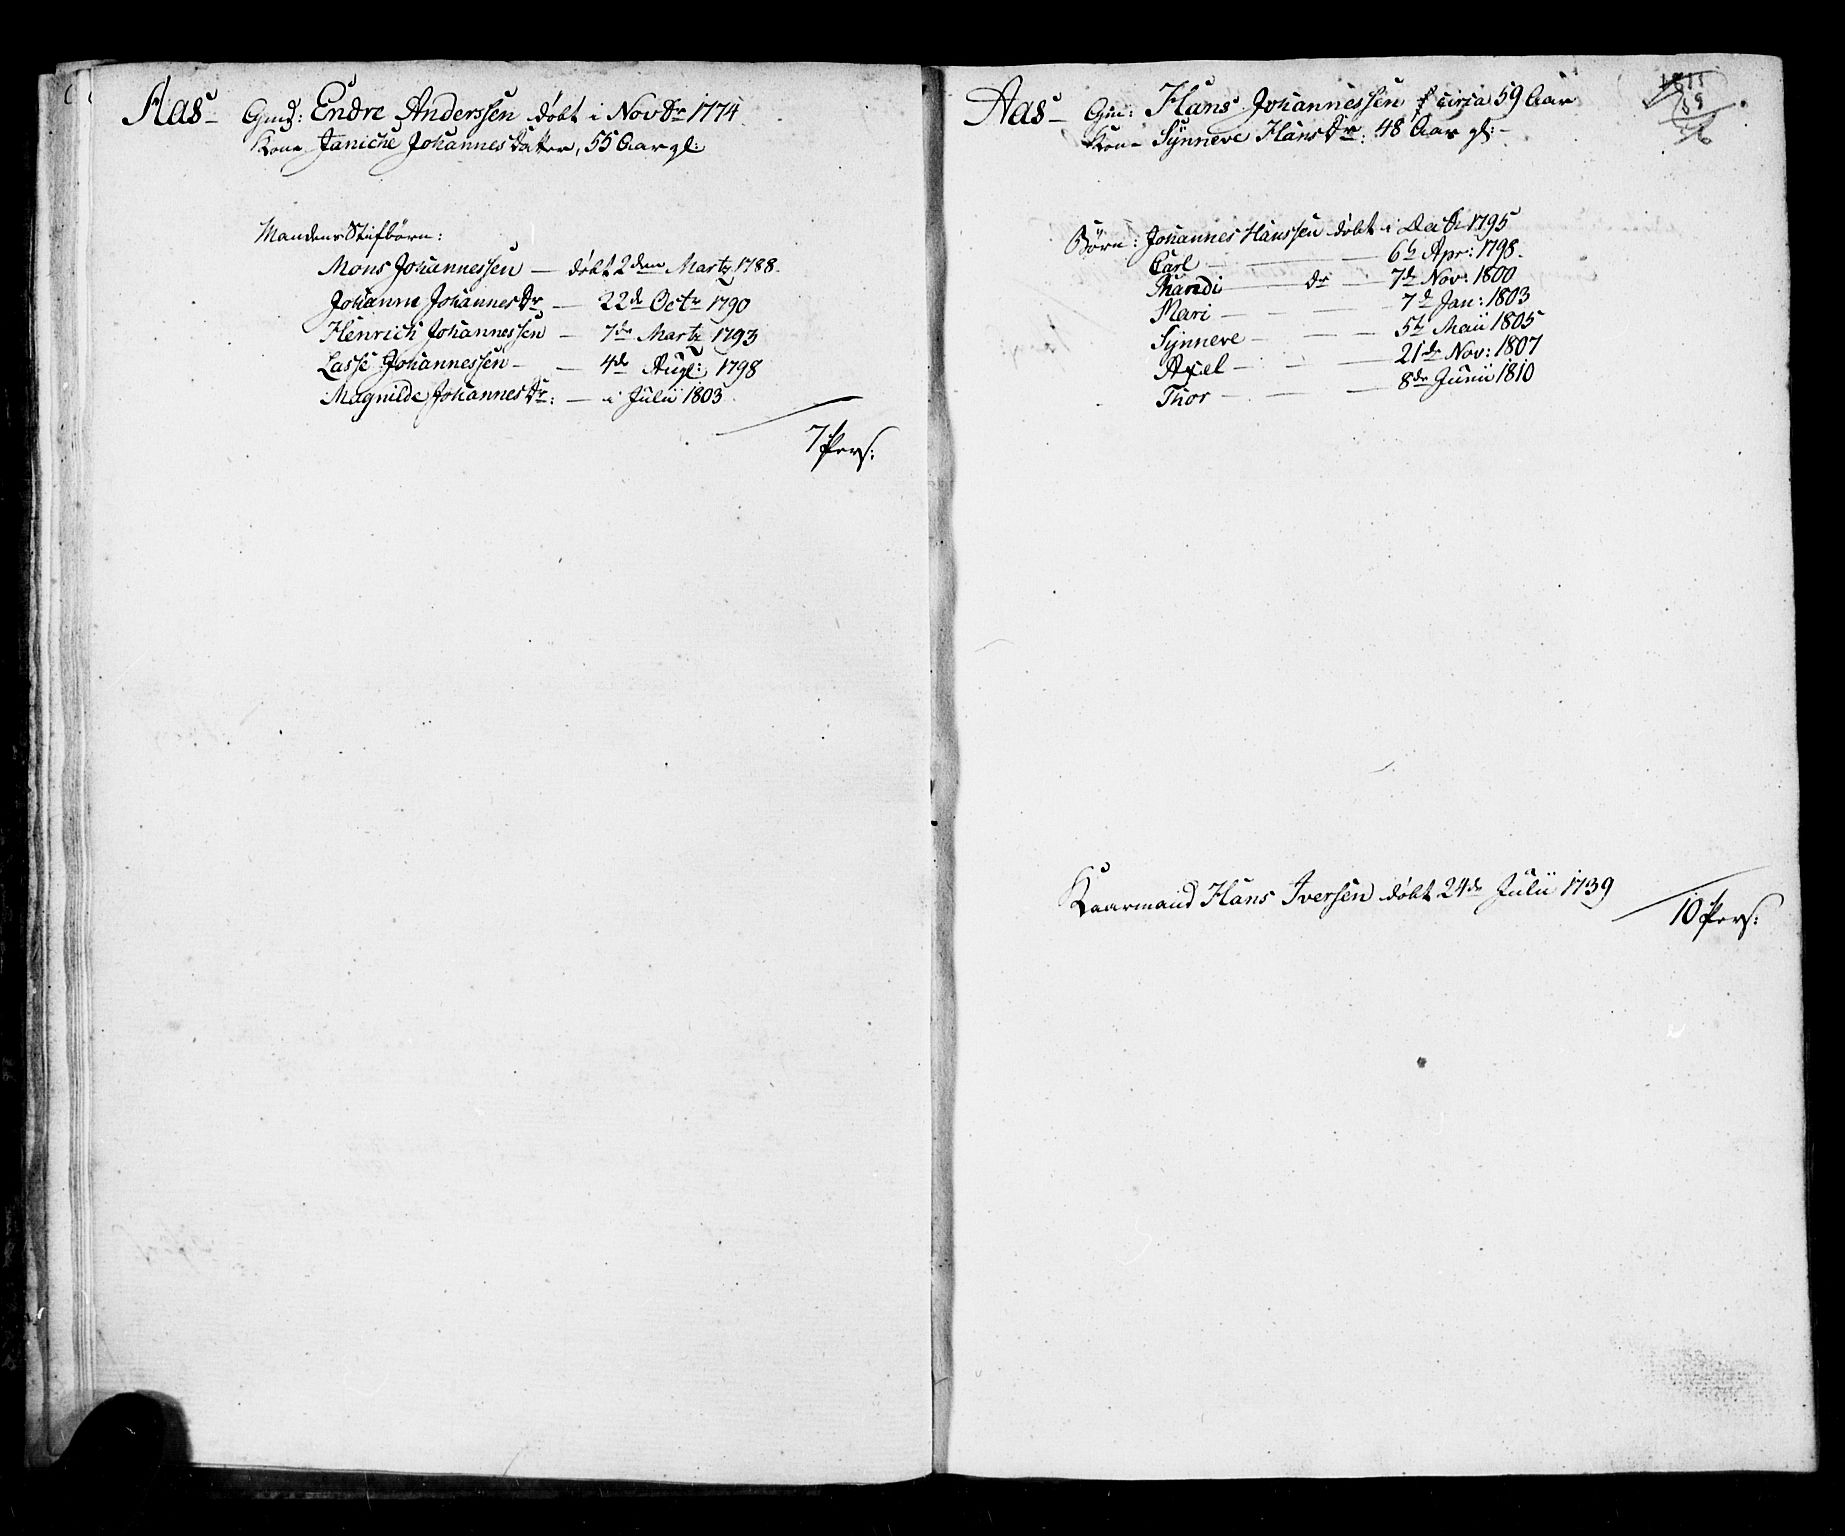 Aas – Gmd: Endre Anderssen døbt i Novbr 1774
Kone Janiche Johannes Datter, 55 Aar gl:
Mandens Stifbørn:
Mons Johannessen — døbt 2den Marty 1788.
Johanne JohannesDr — 22de Octr 1790
Henrich Johannessen — 7de Marty 1793
Lasse Johannessen — 4de Aug: 1798
Magnilde JohannesDr: — i Julii 1803.
7 Pers:
Aas – Gm: Hans Johannessen circa 59 Aar
Kone Synneve HansDr: 48 Aar gl: –
Børn: Johannes Hanssen døbt i Decbr 1795
Carl — 6te Apr: 1798.
Randi — dr — 7de Nov: 1800
Mari — 7d Jan: 1803
Synneve — 5te Maii 1805
Axel — 21de Nov: 1807
Thor — 8de Junii 1810
Kaarmand Hans Iversen døbt 24de Julii 1739
10 Pers: